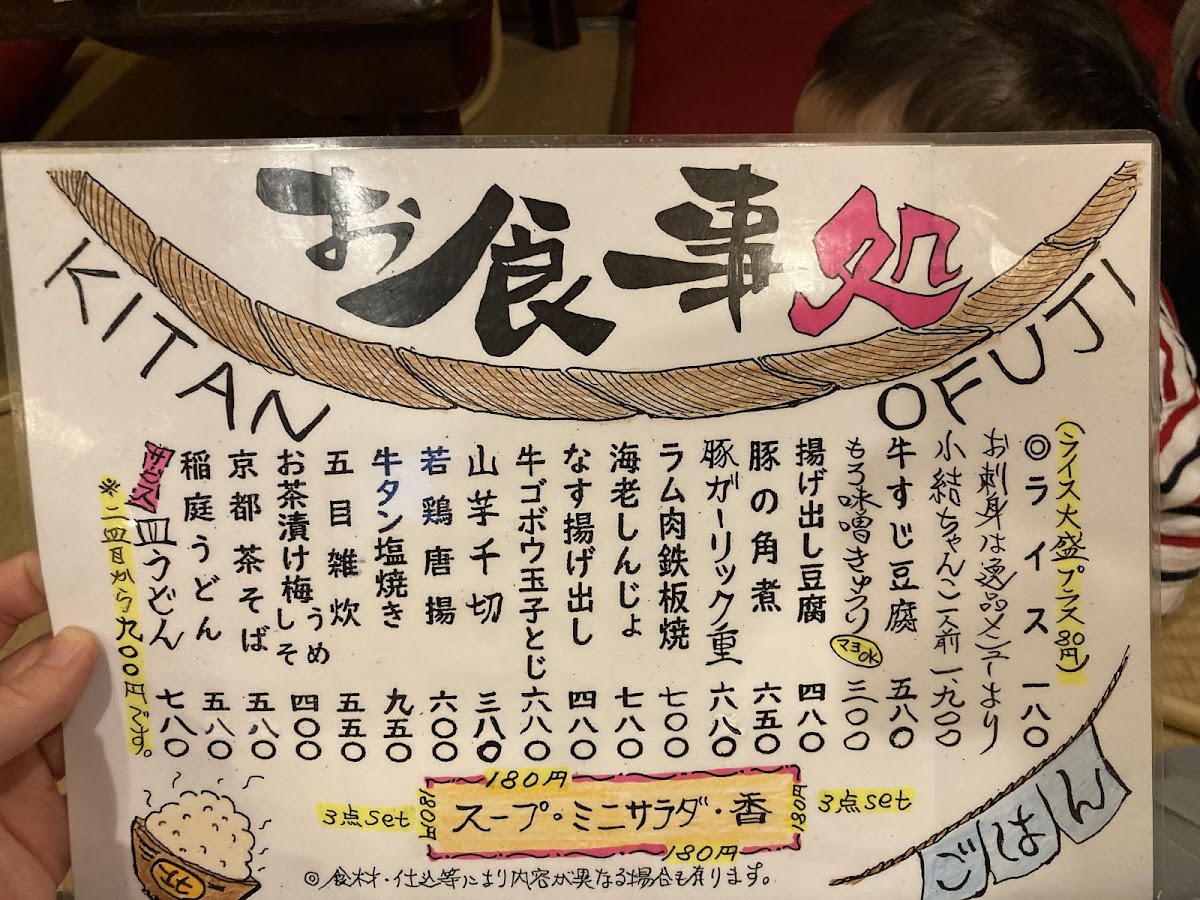 お食事処
KITAN
OFUJI
(ライス大盛プラス80円)
◎ライス 一八〇
お刺身は逸品メニューより
小結ちゃんこ一人前 一、九〇〇
牛すじ豆腐 五八〇
もろ味噌きゅうり マヨOK 三〇〇
揚げ出し豆腐 四八〇
豚の角煮 六五〇
豚ガーリック重 六八〇
ラム肉鉄板焼 七〇〇
海老しんじょ 七八〇
なす揚げ出し 四八〇
牛ゴボウ玉子とじ 六八〇
山芋千切 三八〇
若鶏唐揚 六〇〇
牛タン塩焼き 九五〇
五目雑炊 五五〇
お茶漬け梅しそ うめ 四〇〇
京都茶そば 五八〇
稲庭うどん 五八〇
サービス 皿うどん 七八〇
※二四日から九〇〇円です。
180円
3点set 180円 スープ・ミニサラダ・香 180円 3点set
180円
◎食材・仕込等により内容が異なる場合も有ります。
ごはん